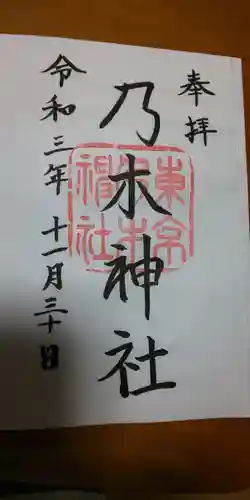 奉拝
乃木神社
東京乃木神社
令和三年十一月三十日